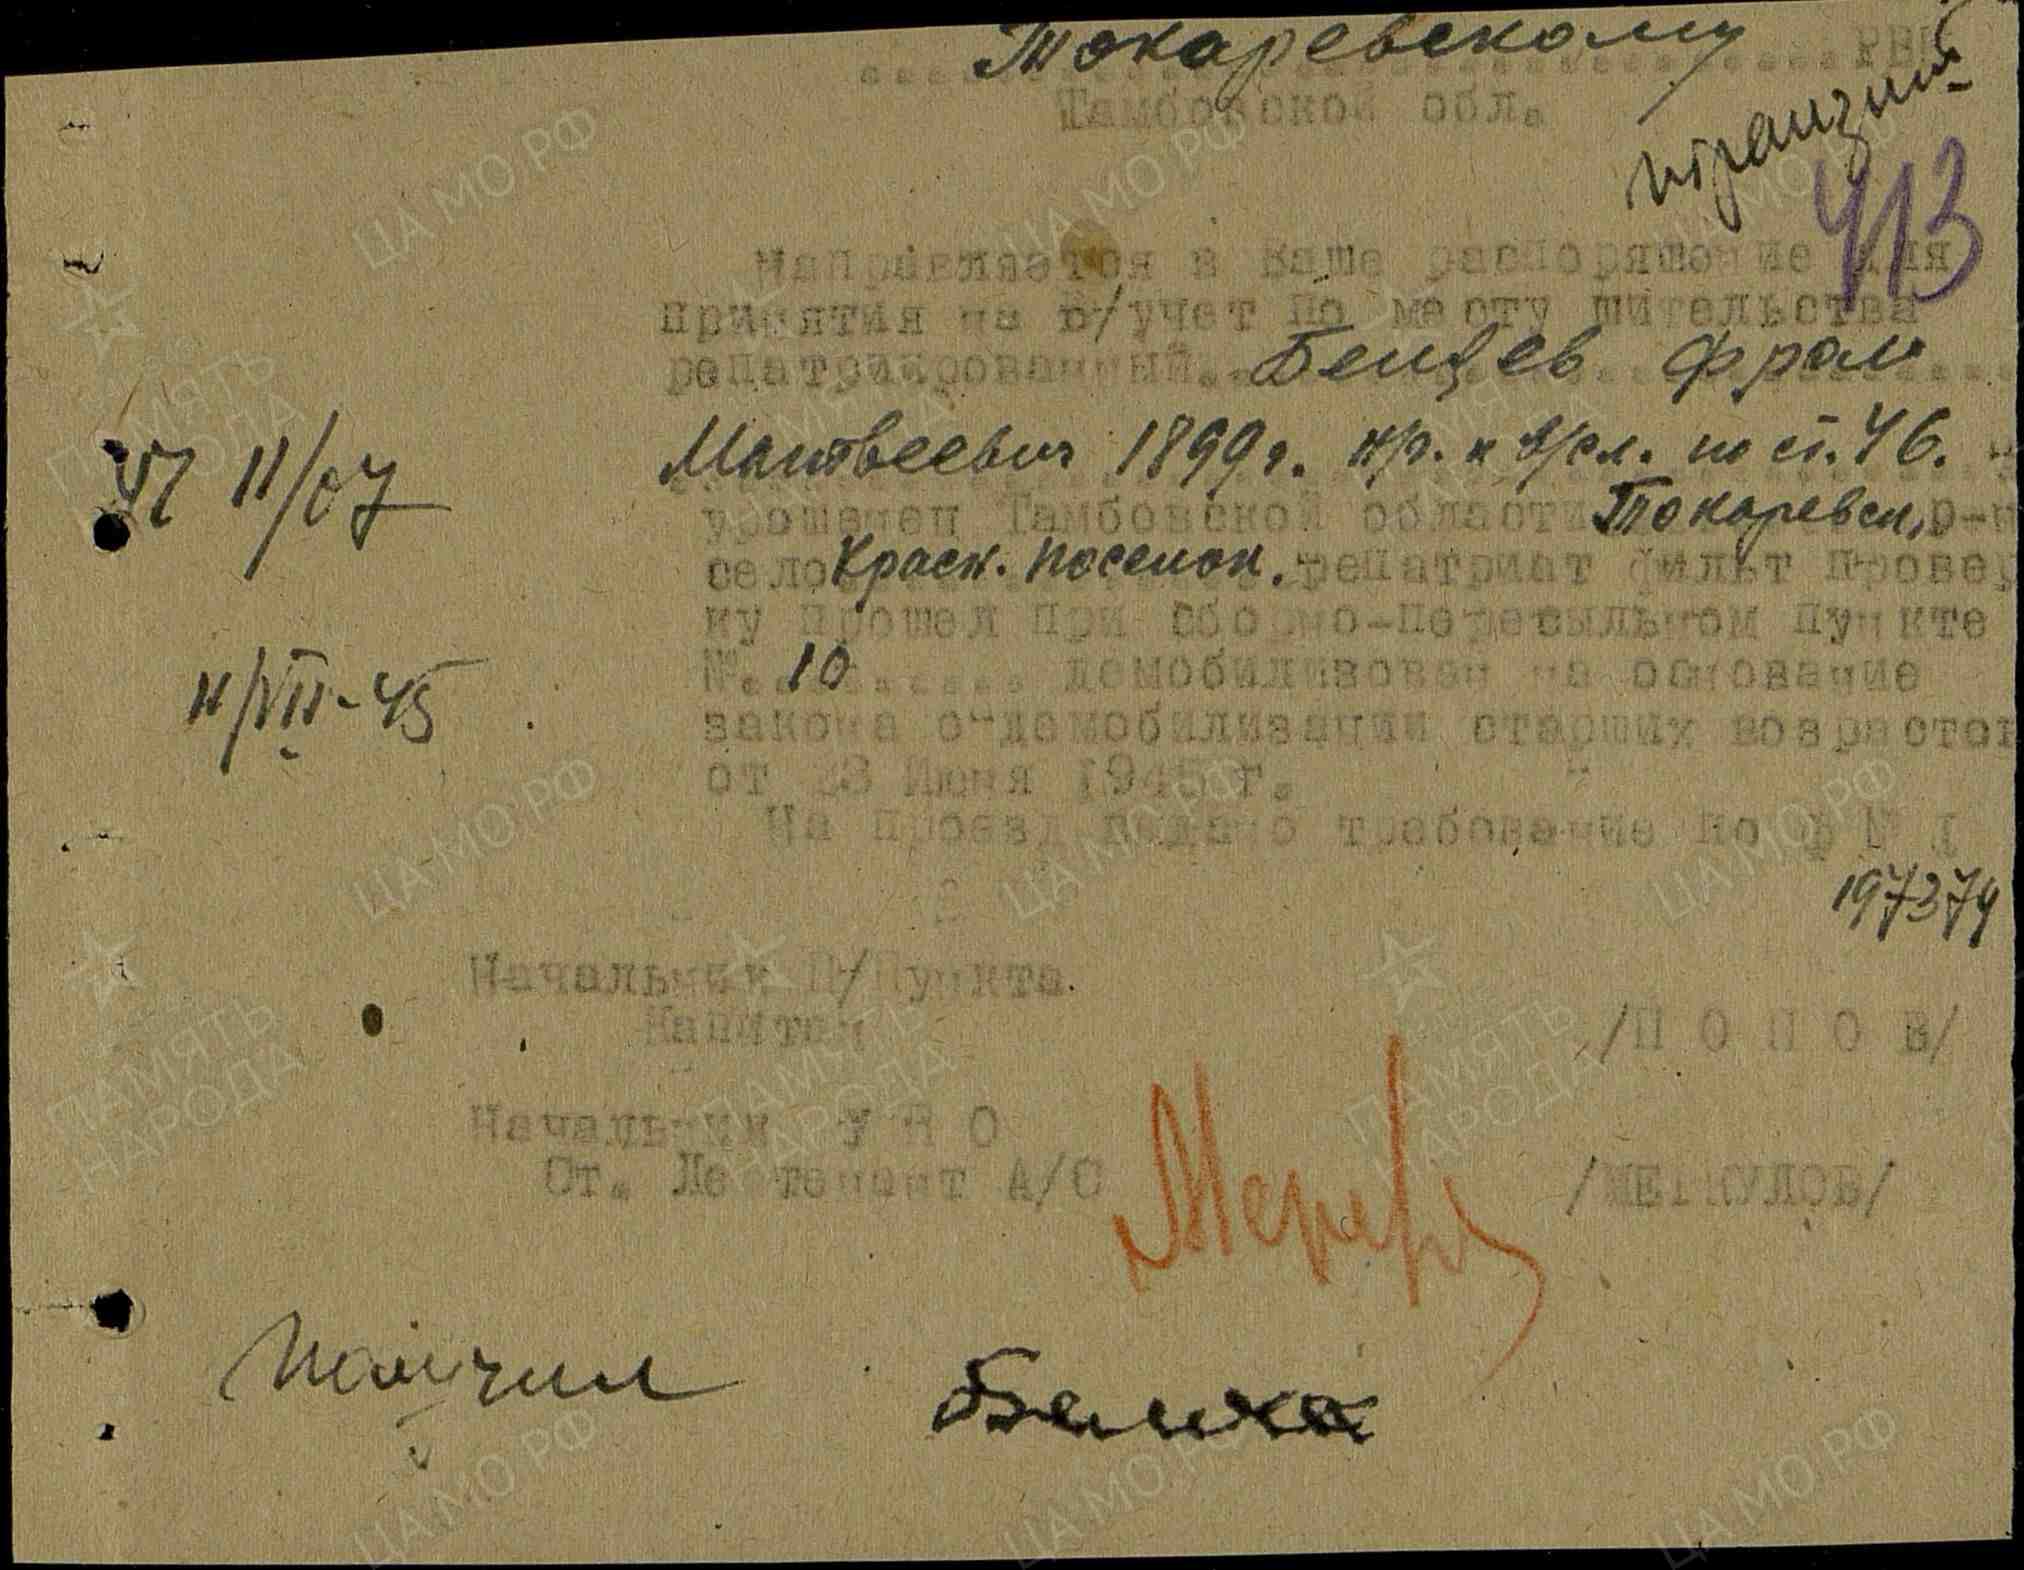 Токаревскому РВК
Тамбовской обл.
транзит
413
Направляется в Ваше распоряжение для
принятия на в/учет по месту жительства
репатриированный Бенцев Фрол
Матвеевич 1899 г. н/р. к в/сл. по ст. 46.
урошенец Тамбовской области Токаревск, р-н
село Красн. поселок. репатриат фильт провер
ку прошел при сборно-пересыльном пункте
№ 10 демобилизован на основание
закона о-демобилизации старших возрастов
от 23 Июня 1945 г.
На проезд подано требование по ф № 1
197374
№ 11/07
11/VII-45
Начальник П/Пункта
Капитан /П О П О В/
Начальник У Ч О
Ст. Лейтенант А/С /МЕРКУЛОВ/
Получил
ЦА МО РФ
ПАМЯТЬ НАРОДА